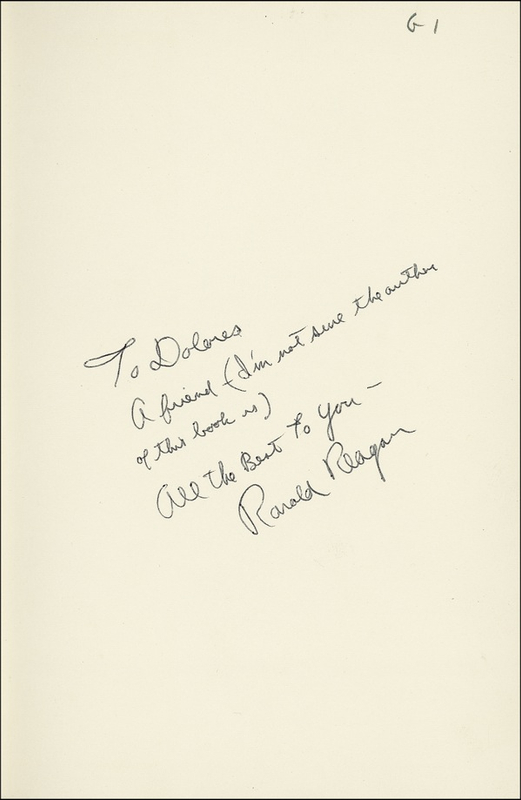 G 1
To Dolores
A friend (I'm not sure the author
of this book is)
All the Best To You —
Ronald Reagan